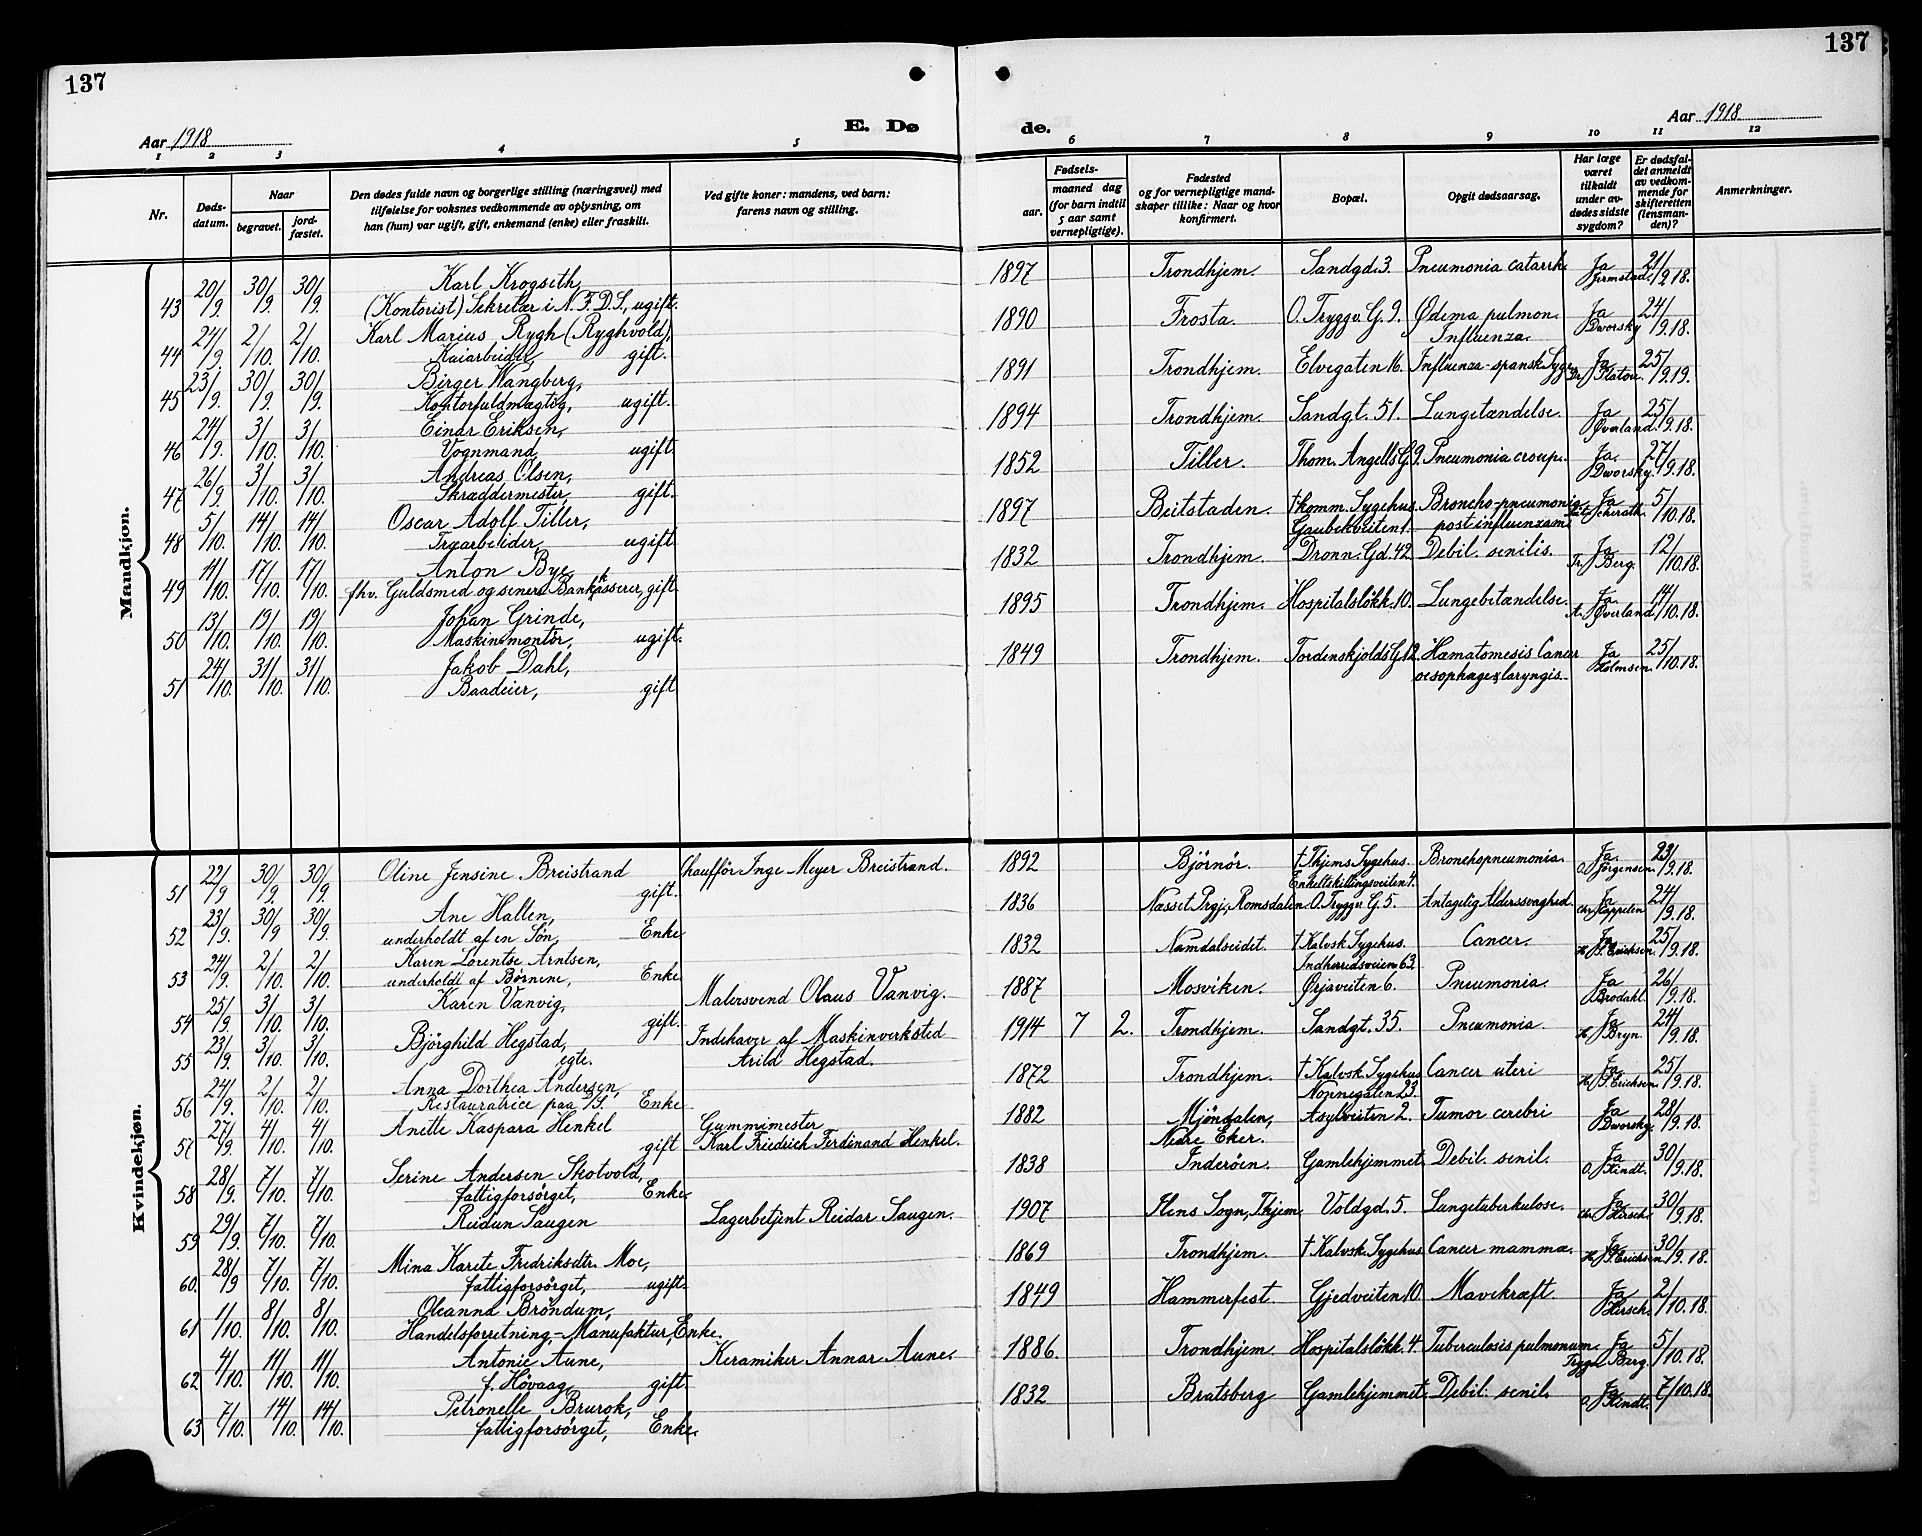 137
137
Aar 1918
E. Dø
de.
Aar 1918
1 2 3 4 5 6 7 8 9 10 11 12
Nr.
Døds-
datum.
Naar
begravet.
jord-
fæstet.
Den dødes fulde navn og borgerlige stilling (næringsvei) med
tilføielse for voksnes vedkommende av oplysning, om
han (hun) var ugift, gift, enkemand (enke) eller fraskilt.
Ved gifte koner: mandens, ved barn:
farens navn og stilling.
Fødsels-
aar.
maaned dag
(for barn indtil
5 aar samt
vernepligtige).
Fødested
og for vernepligtige mand-
skaper tillike: Naar og hvor
konfirmert.
Bopæl.
Opgit dødsaarsag.
Har læge
været
tilkaldt
under av-
dødes sidste
sygdom?
Er dødsfal-
det anmeldt
av vedkom-
mende for
skifteretten
(lensman-
den)?
Anmerkninger.
Mandkjøn.
43 20/9. 30/9. 30/9. Karl Krogseth, 1897 Trondhjem. Sandgd. 3. Pneumonia catarrh. Ja 21/9.18.
(Kontorist) Sekretær i N.F.D.S., ugift.
44 24/9. 2/10. 2/10. Karl Marius Rygh (Ryghvold), 1890 Frosta. O. Tryggv. G. 9. Ødema pulmon. Ja 24/9.18.
Kaiarbeider, gift. Influenza. Dworsky
45 23/9. 30/9. 30/9. Birger Wangberg, 1891 Trondhjem. Elvegaten 16. Influenza-spansk Syge Ja 25/9.19.
Kontorfuldmægtig, ugift. Dr. Platou.
46 24/9. 3/10. 3/10. Einar Eriksen, 1894 Trondhjem. Sandgt. 51. Lungetændelse. Ja 25/9.18.
Vognmand, ugift. Øverland
47 26/9. 3/10. 3/10. Andreas Olsen, 1852 Tiller. Thom. Angells G. 9. Pneumonia croup. Ja 27/9.18.
Skræddermester, gift. Dworsky
48 5/10. 14/10. 14/10. Oscar Adolf Tiller, 1897 Beitstaden. † komm. Sygehus. Broncho-pneumonia Ja 5/10.18.
Træarbeider, ugift. Gaubekveiten 1. post influenzam.
49 11/10. 17/10. 17/10. Anton Bye, 1832 Trondhjem. Dronn. Gd. 42. Debil. senilis. Ja 12/10.18.
fhv. Guldsmed og senere Bankkasserer, gift. Berg.
50 13/10. 19/10. 19/10. Johan Grinde, 1895 Trondhjem. Hospitalsløkk. 10. Lungebetændelse. Ja 14/10.18.
Maskinmontör, ugift. Øverland
51 24/10. 31/10. 31/10. Jakob Dahl, 1849 Trondhjem. Tordenskjolds G. 12. Hæmatomesis Cancer Ja 25/10.18.
Baadeier, gift oesophage & laryngis. Holmsen
Kvindekjøn.
51 22/9 30/9. 30/9. Oline Jensine Breistrand Chaufför Inge Meyer Breistrand. 1892 Björnör. † Thjems Sygehus. Bronchopneumonia. Ja 23/9.18.
gift. Enkeltskillingsveiten 4. O. Jörgensen.
52 23/9. 30/9 30/9. Ane Halten, 1836 Næsset Prgj, Romsdalen. O. Tryggv. G. 5. Antagelig Alderssvaghed. Ja 24/9.18.
underholdt af en Søn, Enke Chr. Kappelen
53 24/9. 2/10. 2/10. Karen Lorentse Arntsen, 1832 Namdalseidet † Kalvsk. Sygehus. Cancer. Ja 25/9.18.
underholdt af Børnene, Enke Indherredsveien 63. Erichsen
54 25/9. 3/10. 3/10. Karen Vanvig, Malersvend Olaus Vanvig. 1887 Mosviken. Ørjaveiten 6. Pneumonia. Ja 26/9.18.
gift. Brodahl.
55 23/9. 3/10. 3/10. Björghild Hegstad, Indehaver af Maskinverksted 1914 7 2. Trondhjem. Sandgt. 35. Pneumonia. Ja 24/9.18.
egte. Arild Hegstad. Bryn.
56 24/9. 2/10. 2/10. Anna Dorthea Andersen, 1872 Trondhjem. † Kalvsk. Sygehus Cancer uteri Ja 25/9.18.
Restauratrice paa D/S. Enke Nonnegaten 23. Erichsen
57 27/9. 4/10. 4/10. Anette Kaspara Henkel Gummimester 1882 Mjöndalen, Asylveiten 2. Tumor cerebri Ja 28/9.18.
gift Karl Friedrich Ferdinand Henkel. Nedre Eker. Dworsky
58 28/9. 7/10. 7/10. Serine Andersen Skotvold, 1838 Inderöen. Gamlehjemmet. Debil. senil. Ja 30/9.18.
fattigforsörget, Enke.
59 29/9. 7/10. 7/10. Reidun Saugen Lagerbetjent Reidar Saugen. 1907 Ilens Sogn, Thjem. Voldgd. 5. Lungetuberkulose. Ja 30/9.18.
Chr. Hirsch.
60. 28/9 7/10. 7/10. Mina Karete Fredriksdtr. Moe, 1869 Trondhjem. † Kalvsk. Sygehus. Cancer mammæ. Ja 30/9.18.
fattigforsörget, ugift. Erichsen
61 1/10. 8/10. 8/10. Oleanna Bröndum, 1849 Hammerfest. Gjedveiten 10. Mavekræft. Ja 2/10.18.
Handelsforretning - Manufaktur, Enke. Hirsch.
62 4/10. 11/10. 11/10. Antonie Aune, Keramiker Annar Aune. 1886. Trondhjem. Hospitalsløkk. 4. Tuberculosis pulmonum. Ja 5/10.18.
f. Hövaag, gift Trygv. Berg.
63 7/10. 14/10. 14/10. Petronelle Brurok, 1832 Bratsberg Gamlehjemmet. Debil. senil. Ja 7/10.18.
fattigforsörget, Enke.